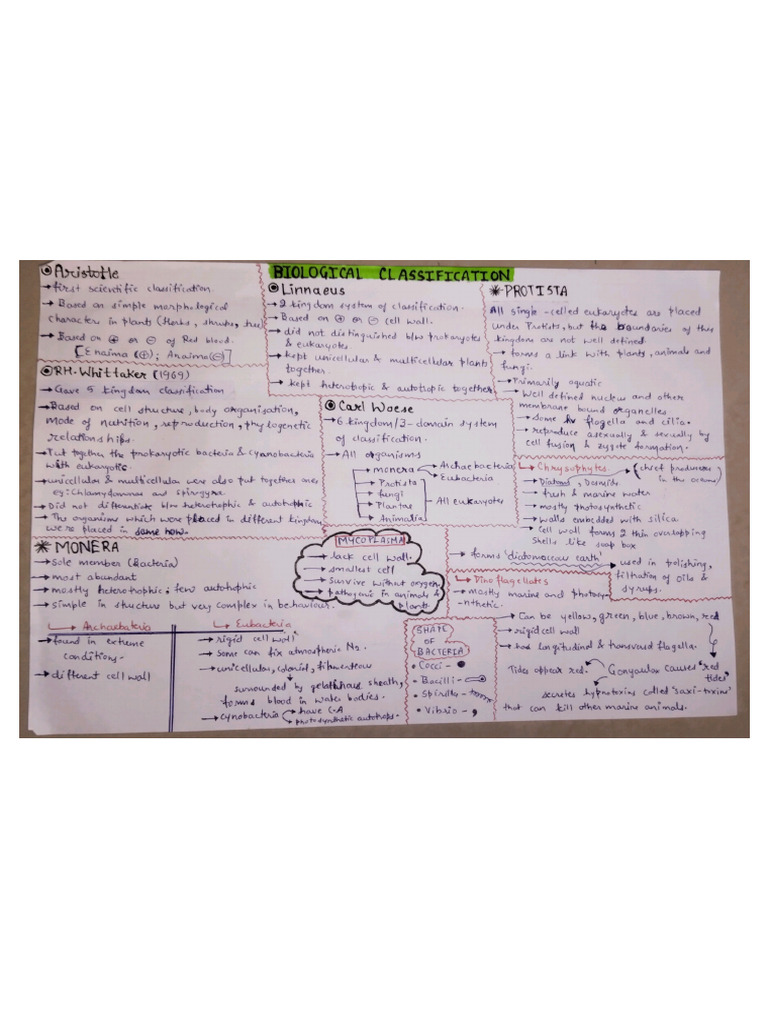 BIOLOGICAL CLASSIFICATION
Aristotle
→ first scientific classification.
→ Based on simple morphological
characters in plants (Herbs, shrubs, tree)
→ Based on ⊕ or ⊖ of Red blood.
[Enaima (⊕); Anaima (⊖)]
Linnaeus
→ 2 kingdom system of classification.
→ Based on ⊕ or ⊖ cell wall.
→ did not distinguished b/w prokaryotes
& eukaryotes.
→ kept unicellular & multicellular plants
together.
→ kept heterotopic & autotopic together
* PROTISTA
All single-celled eukaryotes are placed
under Protists, but the boundaries of this
kingdom are not well defined
→ forms a link with plants, animals and
fungi.
→ Primarily aquatic
→ Well defined nucleus and other
membrane bound organelles
→ some flagella and cilia.
→ reproduce asexually & sexually by
cell fusion & zygote formation.
RH. Whittaker (1969)
→ Gave 5 kingdom classification
→ Based on cell structure, body organisation,
mode of nutrition, reproduction, phylogenetic
relationships.
→ Put together the prokaryotic bacteria & cynobacteria
with eukaryotic.
→ unicellular & multicellular were also put together ones
eg: Chlamydomonas and spirogyra.
→ Did not differentiate b/w heterotrophic & autotrophic
→ The organisms which were placed in different kingdom
were placed in same now.
Carl Woese
→ 6 kingdom/3-domain system
of classification.
→ All organisms
→ monera → Archaebacteria
→ Eubacteria
→ Protista
→ fungi
→ Plantae
→ Animalia
All eukaryotes
→ Chrysophytes. → (chief producers
in the oceans)
→ Diatoms, Desmids
→ fresh & marine water
→ mostly photosynthetic
→ walls embedded with silica
→ Cell wall forms 2 thin overlapping
shells like soap box
→ forms 'diatomaceous earth' → used in polishing,
filtration of oils &
syrups.
* MONERA
→ sole member (Bacteria)
→ most abundant
→ mostly heterotrophic; few autotrophic
→ simple in structure but very complex in behaviour.
MYCOPLASMA
→ lack cell wall.
→ smallest cell
→ survive without oxygen
→ pathogenic in animals &
plants
→ Dinoflagellates
→ mostly marine and photosy
-nthetic.
→ Can be yellow, green, blue, brown, red
→ rigid cell wall
→ has longitudinal & transvard flagella.
Tides appear red. Gonyaulax causes "red
tides"
secretes hypnotoxins called 'saxi-toxins'
that can kill other marine animals.
→ Archaebateria
→ found in extreme
conditions-
→ different cell wall
→ Eubacteria
→ rigid cell wall
→ Some can fix atmospheric N₂.
→ unicellular, colonial, filamentous
surrounded by gelatinous sheath,
forms blood in water bodies.
→ cynobacteria → have C.A
→ photosynthetic autotrops.
SHAPE
OF
BACTERIA
• Cocci -
• Bacilli -
• Spirilla -
• Vibrio -